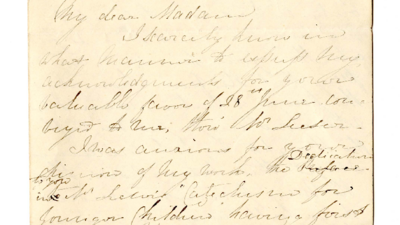 My dear Madam
I scarcely know in
what manner to express my
acknowledgements for your
valuable favor of 28th June con-
veyed to me, thro' Mr
I was anxious for your
opinion of my work, the Dedication
to you
in Catechism for
Younger Children having first